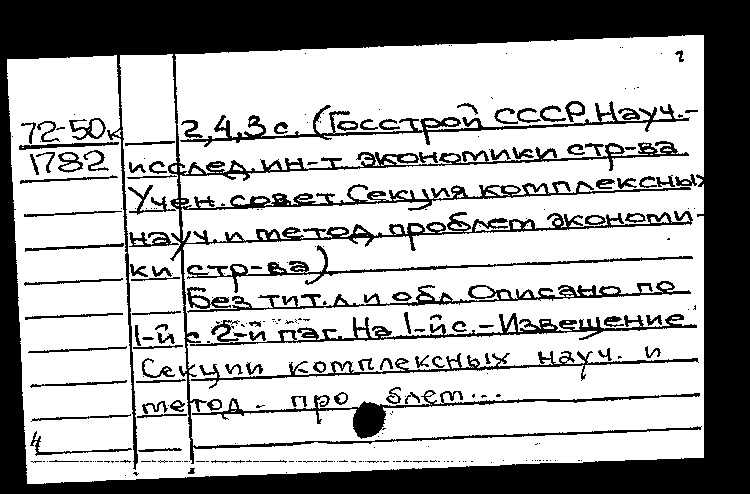 2
72-50к 2,4,3 с. (Госстрой СССР. Науч.-
1782 исслед. ин-т экономики стр-ва
Учен. совет. Секция комплексных
науч. и метод. проблем экономи-
ки стр-ва)
Без тит. л. и обл. Описано по
1-й с. 2-й паг. На 1-й с. - Извещение
Секции комплексных науч. и
метод. про блем...
4